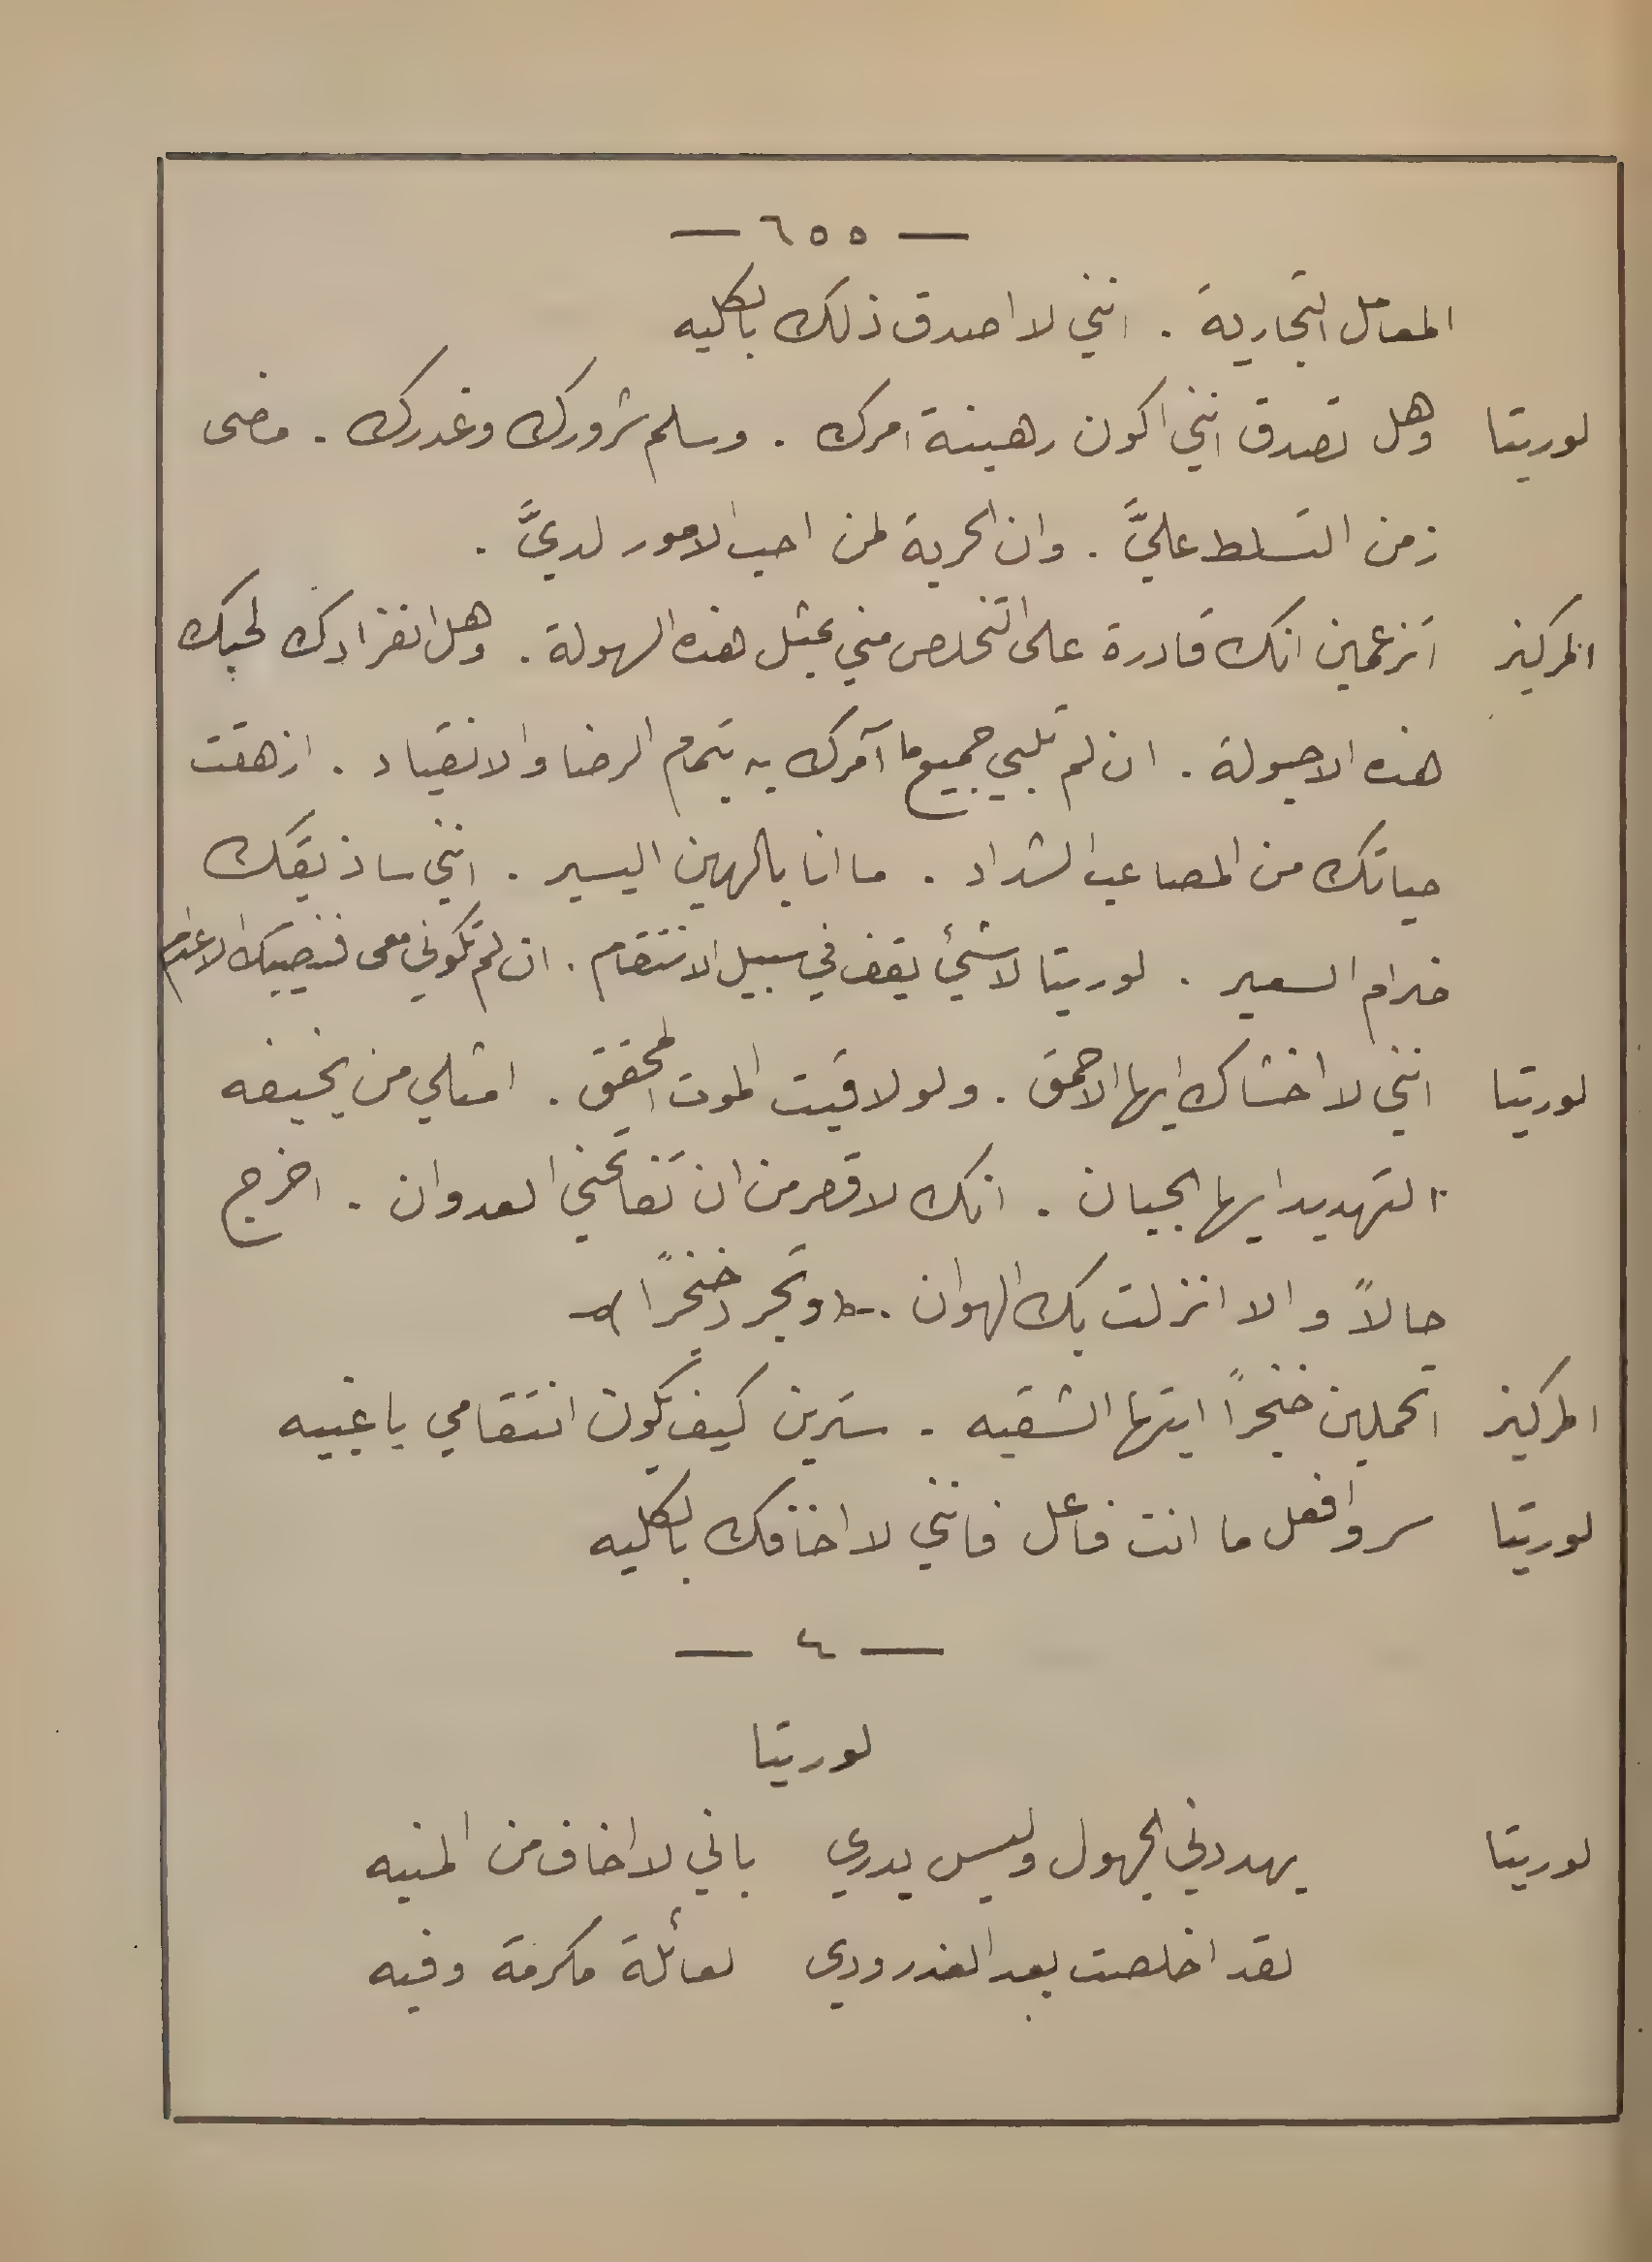 — ٦٥٥ —
المعامل التجارية . انني لا اصدق ذلك بالكليه
لوريتا وهل تصدق انني اكون رهينة امرك . وسلم شرورك وغدرك . مضى
زمن التسلط عليَّ . وان الحرية لمن احب الامور لديَّ .
المركيز اتزعمين انك قادرة على التخلص مني بمثل هذه السهولة . وهل انفرادك
هذه الاحبولة . ان لم تلبي جميع ما آمرك به بتمام الرضا والانقياد . ازهقت
حياتك من المصاعب الشداد . ما انا بالهين اليسير . انني ساذيقك
ضرام السعير . لوريتا لا شيئ يقف في سبيل الانتقام . ان لم تكوني معي فنصيبك الاعدام
لوريتا انني لا اخشاك ايها الاحمق . ولو لاقيت الموت المحقق . امثلي من يخيفه
التهديد ايها الجبان . انك لاقصر من ان تفاتحني العدوان . اخرج
حالاً والا انزلت بك الهوان . (وتجرد خنجرًا)
المركيز اتحملين خنجراً ايتها الشقيه . سترين كيف يكون انتقامي يا غبيه
لوريتا سر وافعل ما انت فاعل فانني لا اخافك بالكليه
— ٤ —
لوريتا
لوريتا يهددني الجهول وليس يدري باني لا اخاف من المنيه
لقد اخلصت بعد الغدر ودي لعائلة مكرمة وفيه